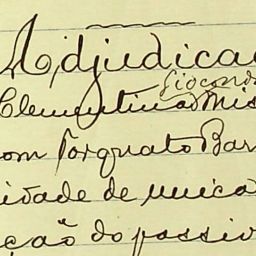 Adjudicaç
Gioconda
Clementina Mis
com Torquato Bar
cidade de unica
ção do passiv